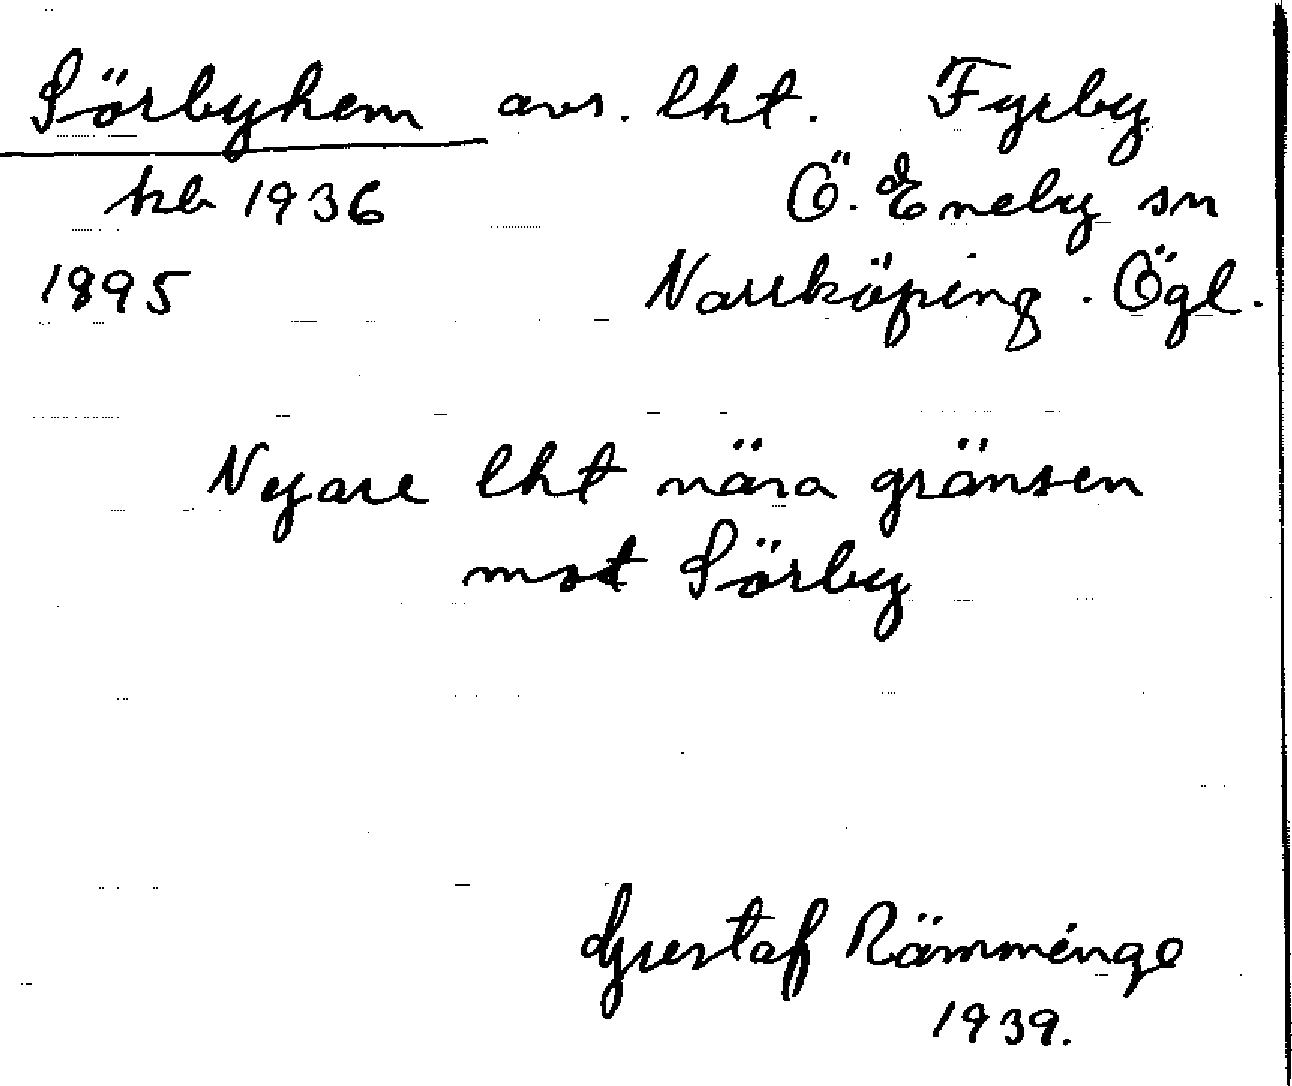 Sörbyhem avs. lht. Fyrby
kb 1936 Ö. Eneby sn
1895 Norrköping. Ögl.
Nyare lht nära gränsen
mot Sörby
Gustaf Rämminge
1939.